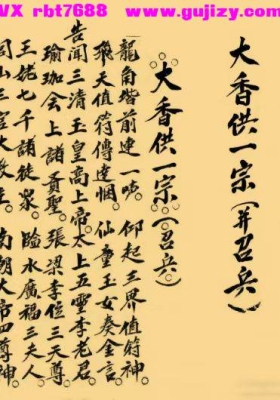 VX rbt7688 www.gujizy.com
大香供一宗（并召兵）
大香供一宗（召兵）
龍角階前連一吹 仰起三界值符神
飛天值符傳達烟 仙童玉女奏金言
告聞三清玉皇高上帝 太上五靈李老君
瑜珈会上諸貢聖 張梁李位三天尊
王姥七千諸徒眾 臨水廣福三夫人
閭山三宮大教主 南朝大帝四尊神